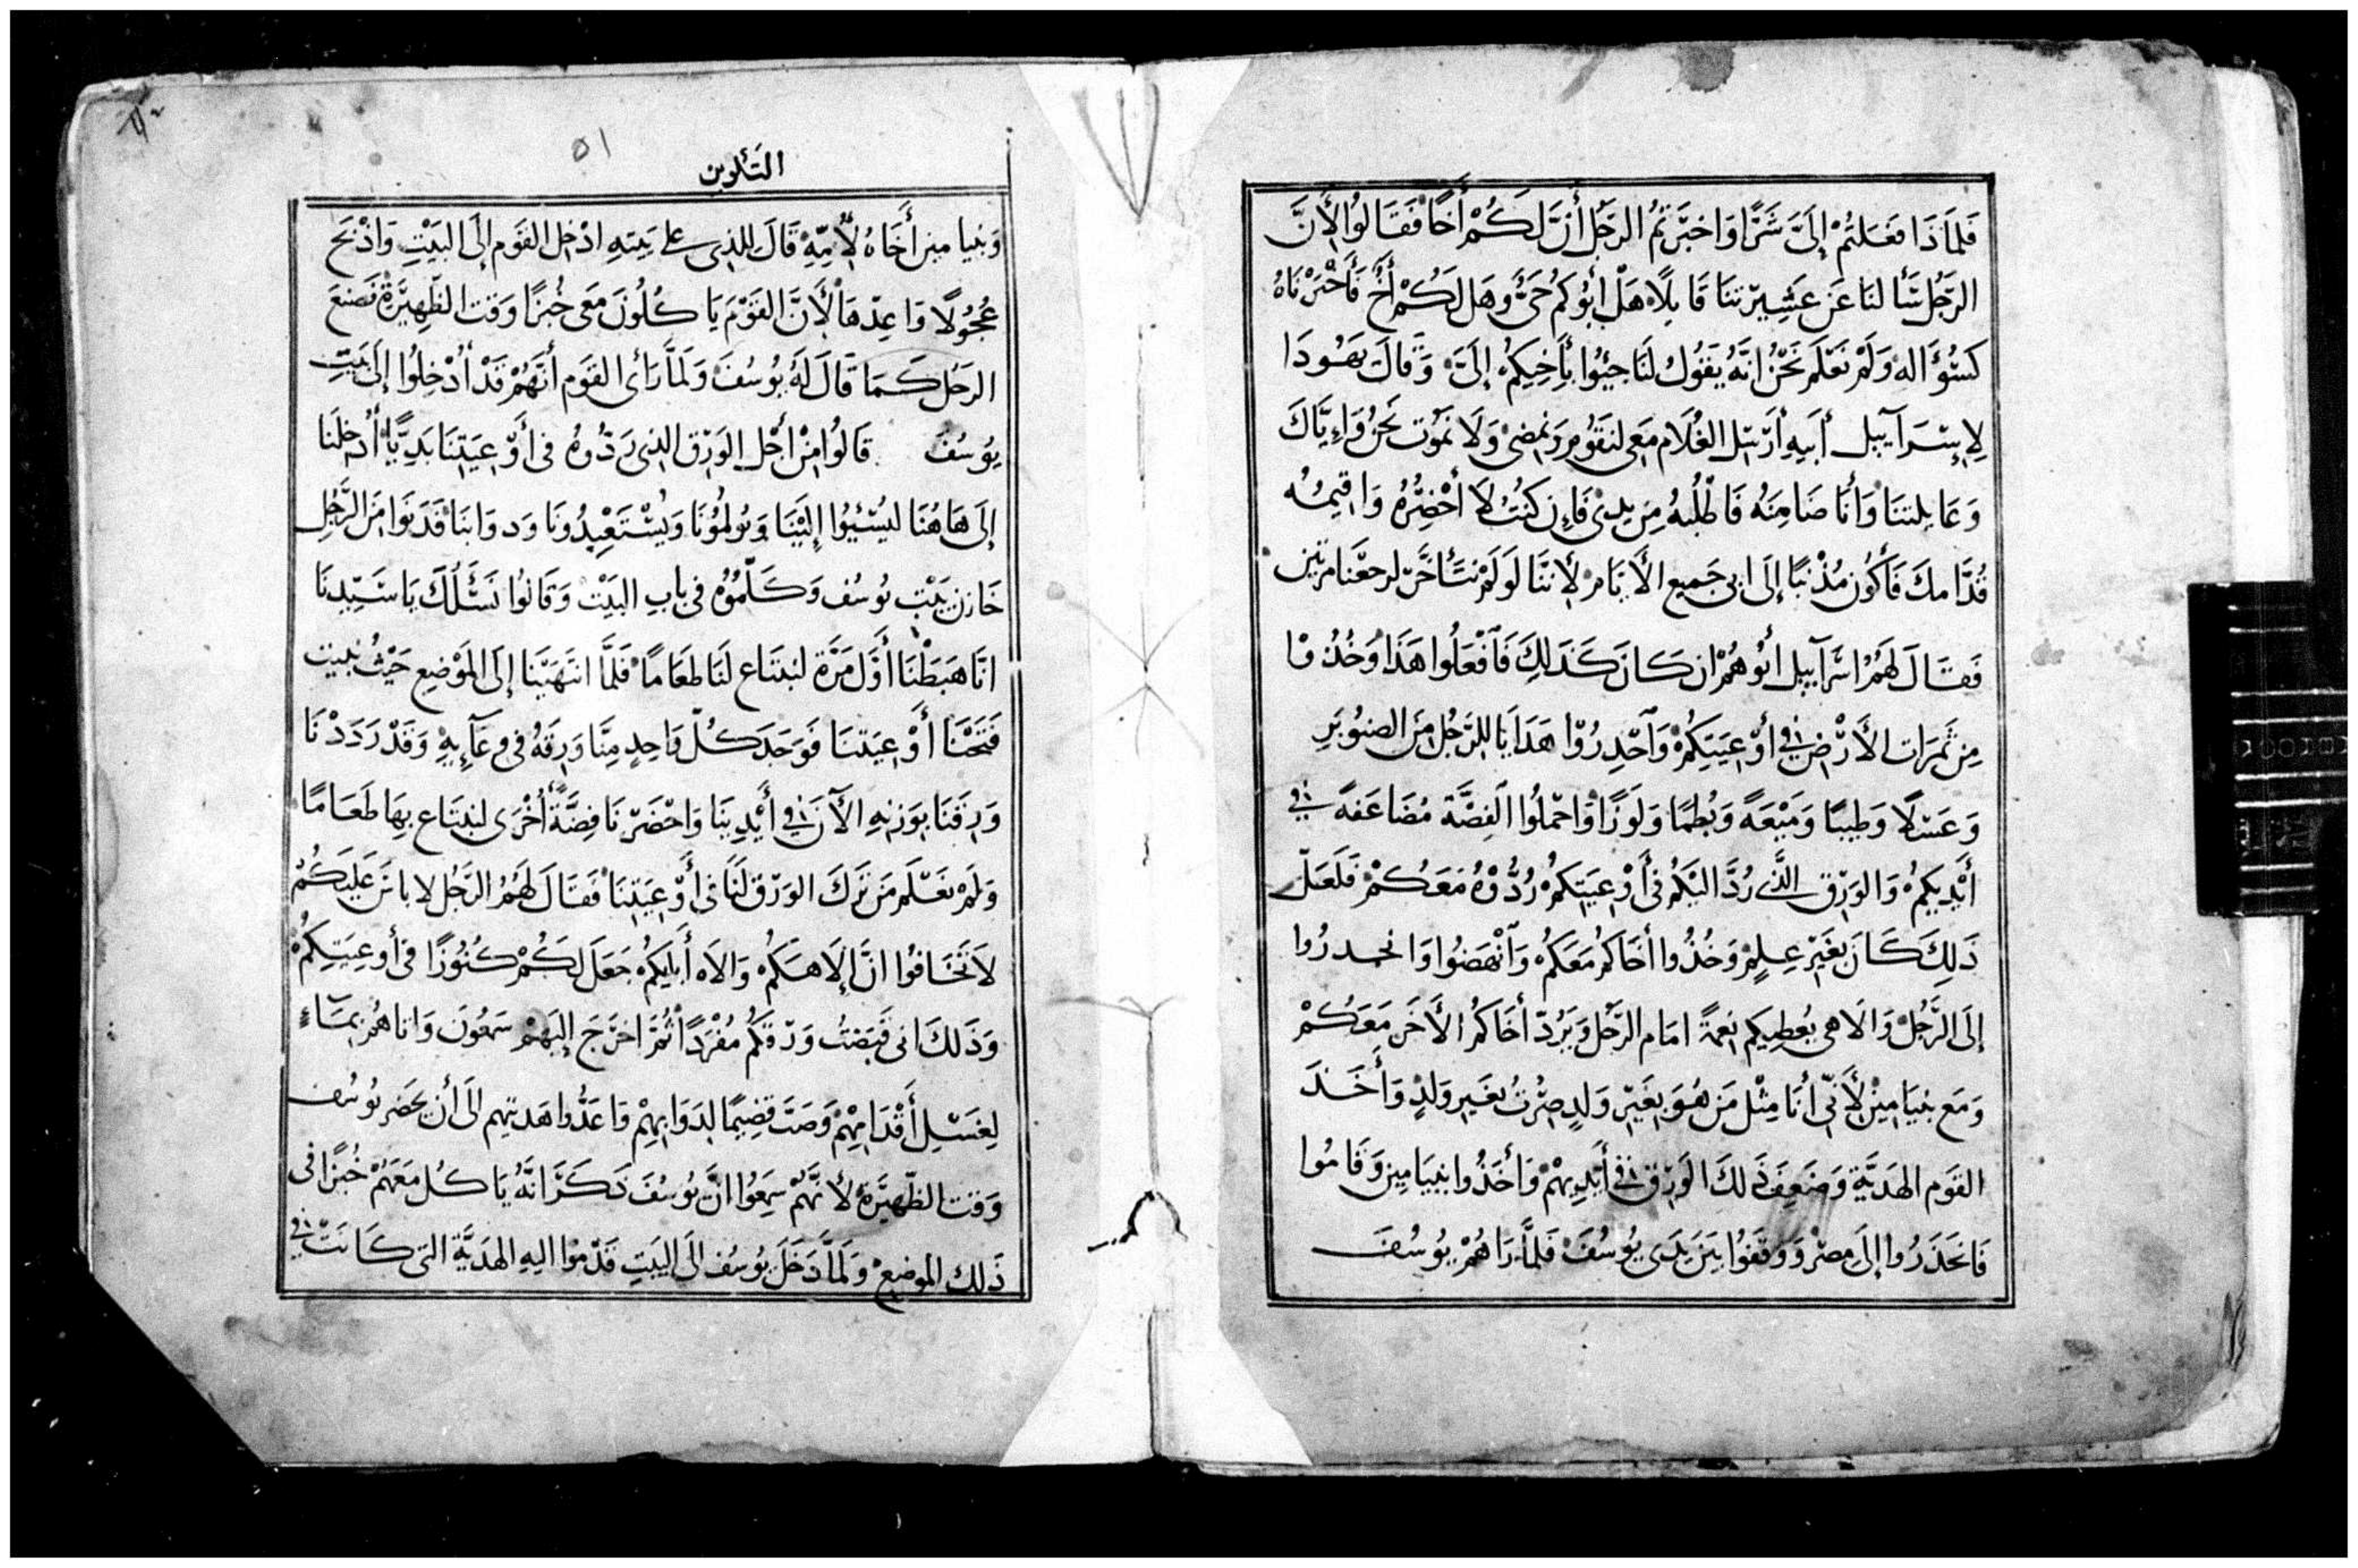 فَلَمَاذَا فَعَلتُمْ إِلَىَّ شَرًّا وَاخبَرتُمُ الرَجُل أنَّ لَكُمْ أَخًا فَقَالُوا لِأَنَّ
الرَجُل سَأَلنَا عَن عَشِيرَتنَا قَايلًا هَلْ أبُوكُم حَىٌّ وهَل لَكُمْ أَخٌ فَأَخْبَرْنَاهُ
كسُؤَاله وَلَمْ نَعْلَم نَحْنُ انَّهُ يَقُول لَنَا جيئُوا بأَخِيكُم إلَىَّ وَقَالَ يَهُودَا
لِإِسْرَآييل أَبيهِ أَرْسِل الغُلَام مَعِى لنَقُوم وَنمضى وَلَا نمُوت نَحنُ وَإِيَّاكَ
وَعَايلتنَا وَأَنَا ضَامِنهُ فَاطْلُبهُ مِن يدى فَإِن كُنتُ لَا أُحْضِرُهُ وَاقيمُه
قُدَّامكَ فَأَكُون مُذْنبًا إلَى ابى جَميع الأَيَّام لِأنَنَّا لَو لَمْ نتَأَخَّر لرجعْنَا مرتين
فَقَالَ لَهُمُ اسْرَآييل ابُوهُمُ ان كَانَ كَذَلِكَ فَافْعَلُوا هَذَا وَخُذُوا
مِن ثَمَرَات الأَرْضِ فى أوْعِيَتِكُمْ وَأحْدِرُوا هَدَايَا للرَّجُل مِنَ الصنُوبَرِ
وَعَسَلًا وَطِيبًا وَمَيْعَةً وَبُطمًا وَلَوزًا وَاحْملُوا الفِضَّة مُضَاعَفةً فى
أَيْدِيكُمُ وَالوَرِق الَّذى رُدَّ اليَكُم فى أَوْعِيَتِكُمْ رُدُّوهُ مَعَكُمْ فَلَعَلّ
ذَلِكَ كَانَ بغَيْرِ عِلمٍ وَخُذُوا أخَاكُم مَعَكُمْ وَأنْهَضُوا وَانحدرُوا
إِلَى الرَّجُل وَالَاهى يُعطِيكُم نِعمَةً امَام الرَّجُل وَيَرُدّ أخَاكُمُ الأَخَر مَعَكُمْ
وَمَع بنيَامِين لأَنّى أنَا مِثْل مَن هُوَ بِغَيْرِ وَلدٍ صِرْتُ بغَيرِ وَلدٍ وَأَخَذَ
القَوم الهَدَيَّة وَضَعفَ ذَلكَ الوَرِق فى أَيْدِيهمْ وَأَخَذُوا بنيَامِين وَقَامُوا
فَانحَدَرُوا إِلَى مِصْر وَوَقَفُوا بَيَن يَدَى يُوسُفَ فَلَمَّا رَاهُمْ يُوسُفَ
٥١
التَكوين
وَبنيامين أَخَاهُ لأُمِّهِ قَالَ للذِى على بَيتهِ ادْخِل القَوم إِلَى البَيْتِ وَاذْبَح
عُجُولًا وَاعِدّهَا لأَنَّ القَوْمَ يَاكُلُونَ مَعى خُبزًا وَقت الظَهِيرَة فَصَنعَ
الرَجُل كَمَا قَالَ لَهُ يُوسُفَ وَلَمَّا رَأَى القَوم أَنَّهُمُ قَدْ أُدْخِلُوا إِلَى بَيتِ
يُوسُفَ قَالُوا مِنْ أَجْل الوَرِق الذِى رَدُّوهُ فى أَوْعِيَتِنَا بَدِيًّا أُدْخِلنَا
إِلَى هَاهُنَا ليُسْيئُوا إِلَيْنَا وَيُولمُونَا وَيَسْتَعْبِدُونَا وَدوَابنَا فَدَنَوا مِنَ الرَّجُلِ
خَازن بَيْت يُوسُف وَكَلَّمُوهُ فى بابِ البَيْتْ وَقَالُوا نَسْئَلُكَ يَا سَيِّدِنَا
انَّا هَبَطْنَا أَوَّل مَرَّة لنبْتَاع لَنَا طَعَامًا فَلَمَّا انتَهَيْنَا إِلَى المَوْضِع حَيْثُ نَبيت
فَتَحْنَا أَوْعِيَتنَا فَوَجَدَ كُلّ وَاحِدٍ مِنَّا وَرِقَهُ فى وعَآئِهِ وَقَدْ رَدَدْنَا
وَرِقَنَا بوَزنهِ الآنَ فى أَيْدِينَا وَاحْضَرْنَا فِضَّةً أُخْرَى لنبْتَاع بِهَا طَعَامًا
وَلَمْ نَعْلَم مَن تَرَكَ الوَرِق لَنَا فى أَوْعِيَتِنَا فَقَالَ لَهُمُ الرَّجُل لا باس عَلَيكُمْ
لاَ تَخَافُوا انَّ إِلَاهَكُم وَالَاه أَبَايكُم جَعَلَ لَكُمْ كُنُوزًا فى أوعِيَتِكُمْ
وَذَلكَ انى قَبَضتُ وَرِقَكُم مُفْرَدًا ثُمَّ اخرَجَ إليَهِمْ سَمعُونَ وَاتاهُم بِمَآءٍ
لِغَسْلِ أَقْدَامِهِمْ وَصَبَّ قَضِيمًا لِدَوَابِهِمْ وَاعَدُّوا هَديتهم إلَى أن يَحضر يُوسُف
وَقت الظَهِيرَة لأنَّهُمْ سَمِعُوا انَّ يُوسُفَ ذَكَرَ انَّهُ يَاكُل مَعَهُمْ خُبزًا فى
ذَلك الموضِع وَلَمَّا دَخَلَ يُوسُف الَى البَيتِ قَدَّمُوا اليهِ الهَدِيَّة التى كَانَتْ فى